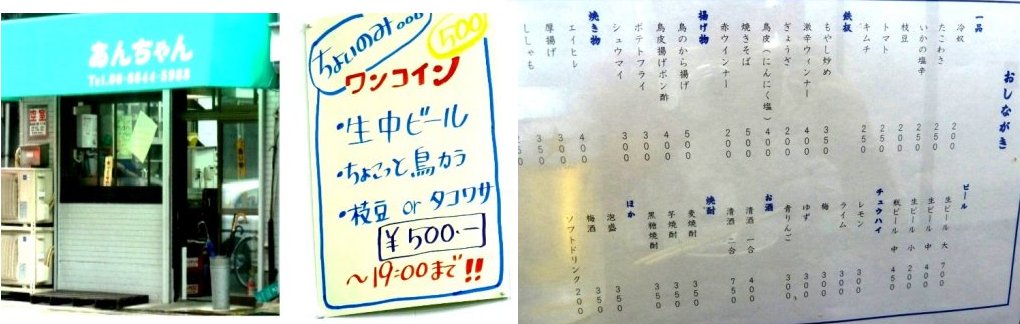 あんちゃん
空室
ちょいのみ。。。
500
ワンコイン
・生中ビール
・ちょこっと鳥カラ
・枝豆 or タコワサ
¥500.-
～19:00まで!!
おしながき
一品
冷奴 200
たこわさ 250
いかの塩辛 250
枝豆 200
トマト 200
キムチ 250
鉄板
もやし炒め 350
激辛ウィンナー 400
ぎょうざ 200
鳥皮（にんにく塩） 400
焼きそば 500
赤ウインナー 200
揚げ物
鳥のから揚げ 500
鳥皮揚げポン酢 400
ポテトフライ 300
シュウマイ 300
焼き物
エイヒレ 400
厚揚げ 300
ししゃも 350
ビール
生ビール 大 700
生ビール 中 400
生ビール 小 200
瓶ビール 中 450
チュウハイ
レモン 300
ライム 300
梅 300
ゆず 300
青りんご 300
お酒
清酒 一合 400
清酒 二合 750
焼酎
麦焼酎 350
芋焼酎 350
黒糖焼酎 350
ほか
泡盛 350
梅酒 350
ソフトドリンク 200